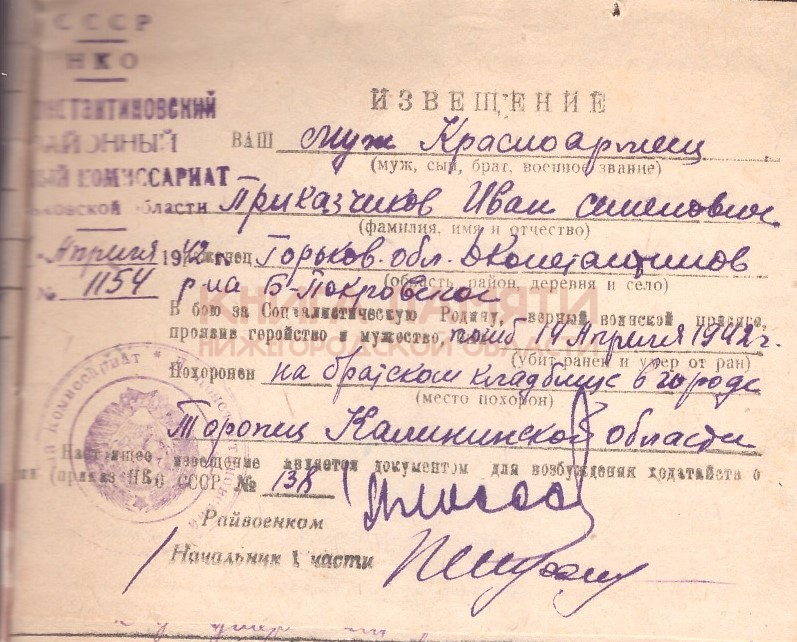 СССР
НКО
онстантиновский
РАЙОННЫЙ
ый комиссариат
ьковской области
ИЗВЕЩЕНИЕ
ВАШ муж Красноармеец
(муж, сын, брат, военное звание)
Приказчиков Иван Семенович
(фамилия, имя и отчество)
Апреля 1942 г. Уроженец Горьков. обл. Д Константинов
(область, район, деревня и село)
№ 1154 р-на Б-Покровское
В бою за Социалистическую Родину, верный воинской присяге,
проявив геройство и мужество, погиб 14 Апреля 1942 г.
(убит ранен и умер от ран)
Похоронен на братском кладбище в городе
(место похорон)
Торопец Калининской области
Настоящее извещение является документом для возбуждения ходатайств о
(приказ НКО СССР № 138
Райвоенком
Начальник 1 части
КНИГА ПАМЯТИ
НИЖЕГОРОДСКОЙ ОБЛАСТИ